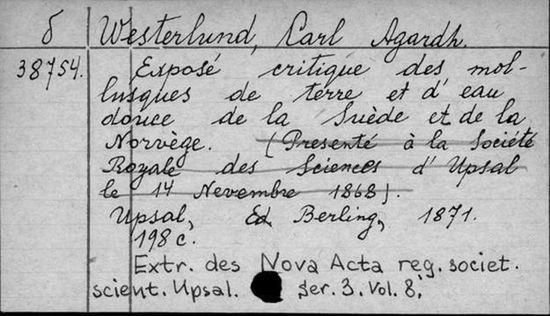 б Westerlund, Carl Agardh.
38754. Exposé critique des mol-
lusques de terre et d'eau
douce de la Suède et de la
Norvège. (Presenté à la Société
Royale des Sciences d'Upsal
le 14 Nevembre 1868).
Upsal, Ed. Berling, 1871.
198 c.
Extr. des Nova Acta reg. societ.
scient. Upsal. Ser. 3. Vol. 8.